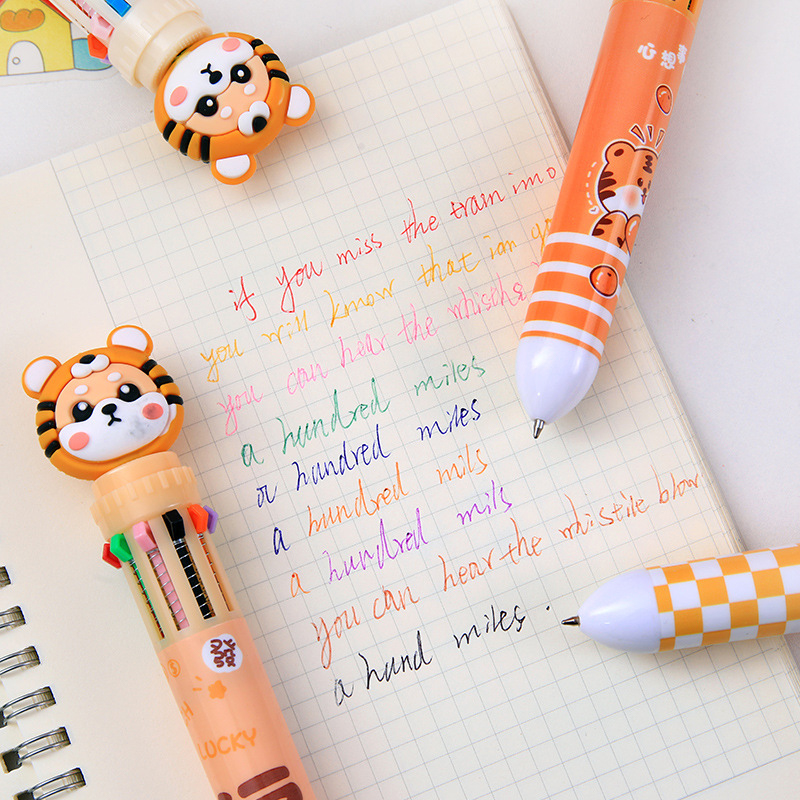 if you miss the train imo
you will know that iam
you can hear the whischs
a hundred miles
a hundred miles
a hundred mils
a hundred mils
you can hear the whistile blow
a hund miles.
心想
LUCKY